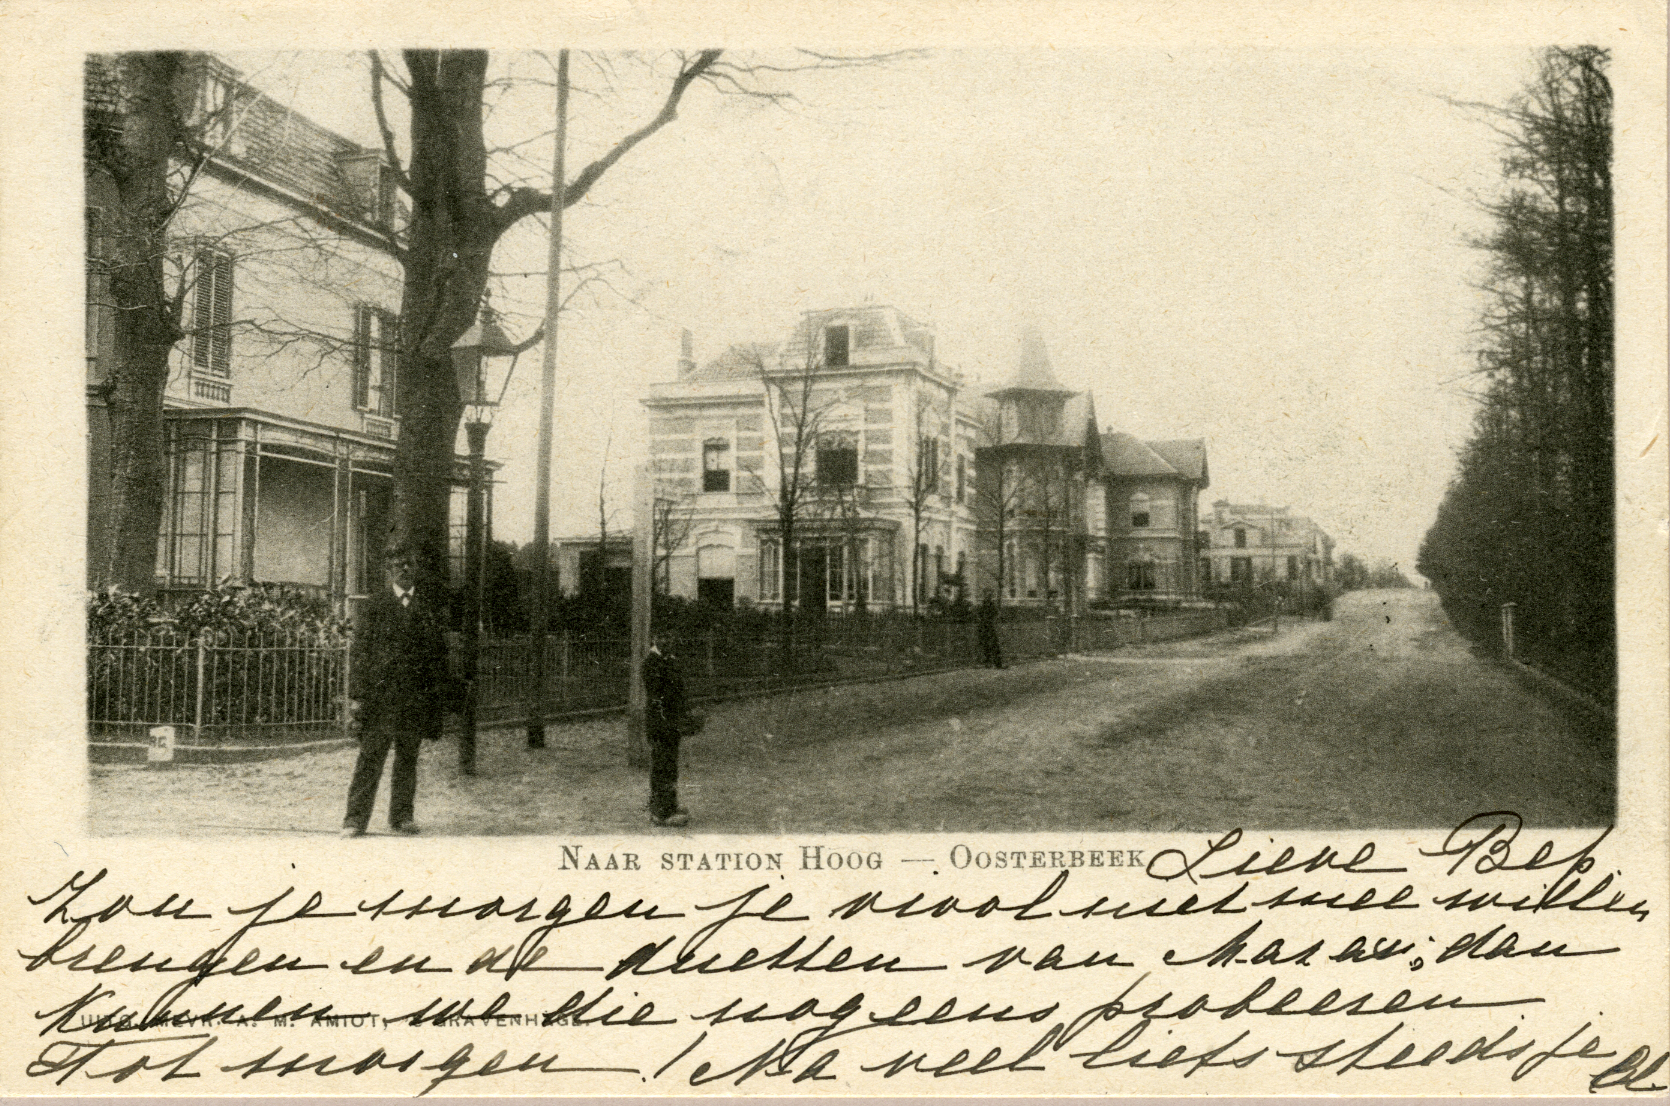 NAAR STATION HOOG — OOSTERBEEK
Lieve Bep
Zou je morgen je viool niet mee willen
brengen en de duetten van Mazas; dan
kunnen we die nog eens probeeren
UITG. MEVR. A. M. AMIOT, 's GRAVENHAGE.
Tot morgen! Na veel liefs steeds je